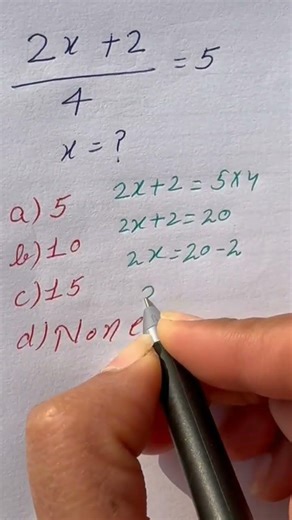 2x + 2
4
= 5
x = ?
a) 5
b) 10
c) 15
d) None
2x + 2 = 5 x 4
2x + 2 = 20
2x = 20 - 2
2